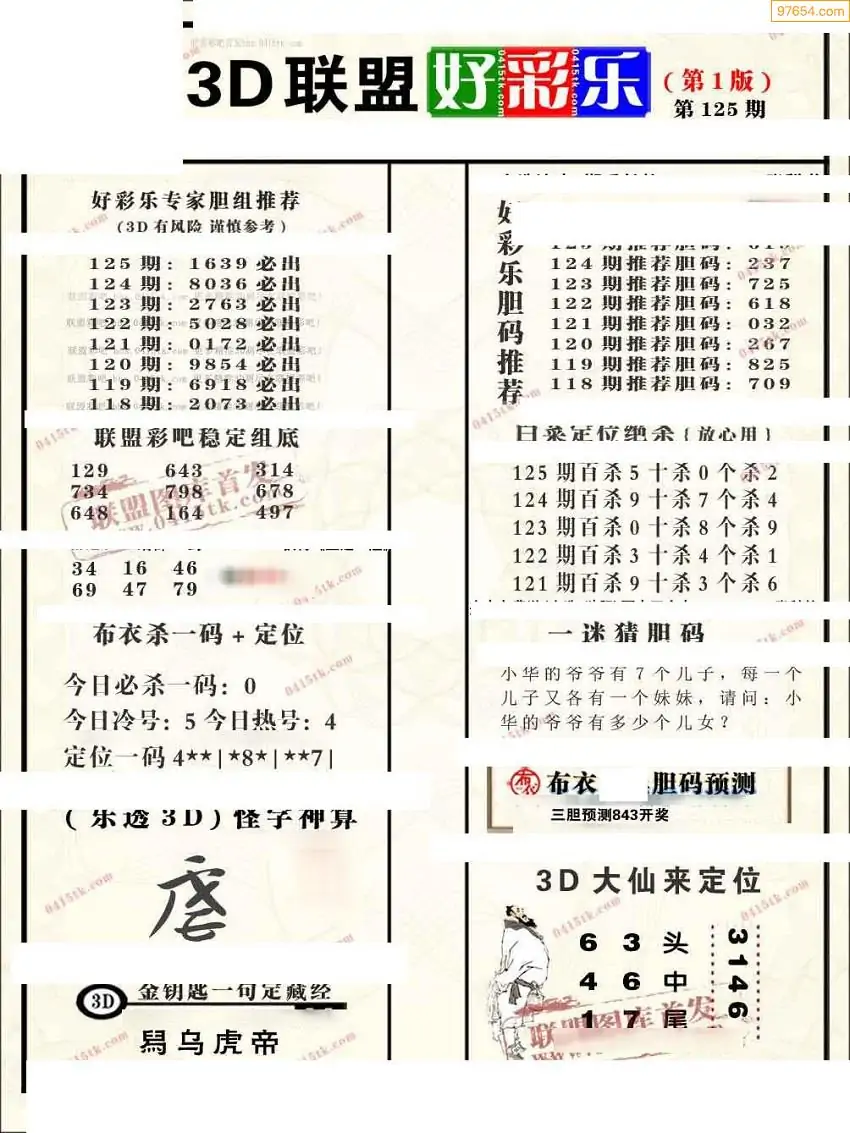 97654.com
3D联盟好彩乐
(第1版)
第125期
好彩乐专家胆组推荐
(3D有风险 谨慎参考)
125期: 1639必出
124期: 8036必出
123期: 2763必出
122期: 5028必出
121期: 0172必出
120期: 9854必出
119期: 6918必出
118期: 2073必出
联盟彩吧稳定组底
129 643 314
734 798 678
648 164 497
34 16 46
69 47 79
布衣杀一码+定位
今日必杀一码: 0
今日冷号: 5 今日热号: 4
定位一码4**|*8*|**7|
(乐透3D)怪字神算
3D
金钥匙一句定藏经
舄乌虎帝
好彩乐胆码推荐
124期推荐胆码: 237
123期推荐胆码: 725
122期推荐胆码: 618
121期推荐胆码: 032
120期推荐胆码: 267
119期推荐胆码: 825
118期推荐胆码: 709
定位绝杀(放心用)
125期百杀5十杀0个杀2
124期百杀9十杀7个杀4
123期百杀0十杀8个杀9
122期百杀3十杀4个杀1
121期百杀9十杀3个杀6
一迷猜胆码
小华的爷爷有7个儿子，每一个
儿子又各有一个妹妹，请问：小
华的爷爷有多少个儿女？
布衣 胆码预测
三胆预测843开奖
3D大仙来定位
6 3 头
4 6 中
1 7 尾
3146
联盟图库首发
www.0415tk.com
0415tk.com